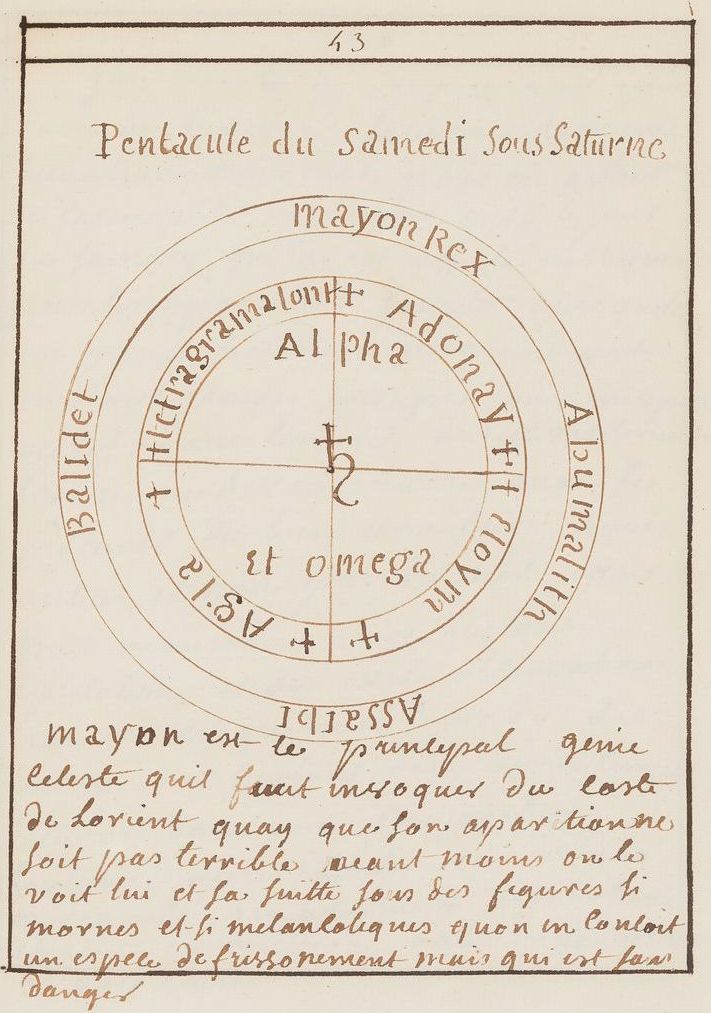 43
Pentacule du Samedi Sous Saturne
mayon Rex
Abumalith
Assaibi
Balidet
+ Adonay +
+ Eloym +
+ Agla +
+ tetragramaton +
Alpha
Et omega
mayon est le principal genie
Celeste quil faut invoquer du Costé
de Lorient quay que son aparition ne
soit pas terrible neant moins on le
voit lui et sa suitte sous des figures si
mornes et si melancoliques quon en Concoit
un espece de frissonement mais qui est sans
danger